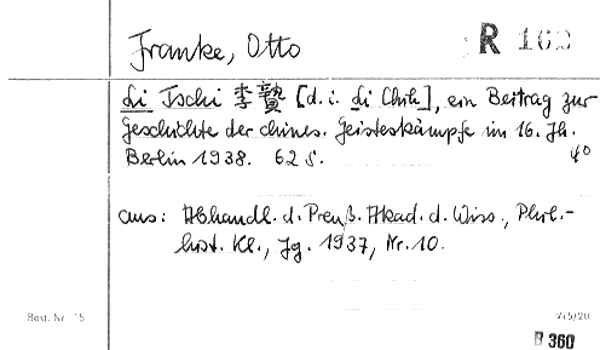 Franke, Otto
R 162
Li Tschi 李贄 [d. i. Li Chih], ein Beitrag zur
Geschichte der chines. Geisteskämpfe im 16. Jh.
Berlin 1938. 62 S.
4°
aus: Abhandl. d. Preuß. Akad. d. Wiss., Phil.-
hist. Kl., Jg. 1937, Nr. 10.
Best. Nr. 15
V/5/20
360